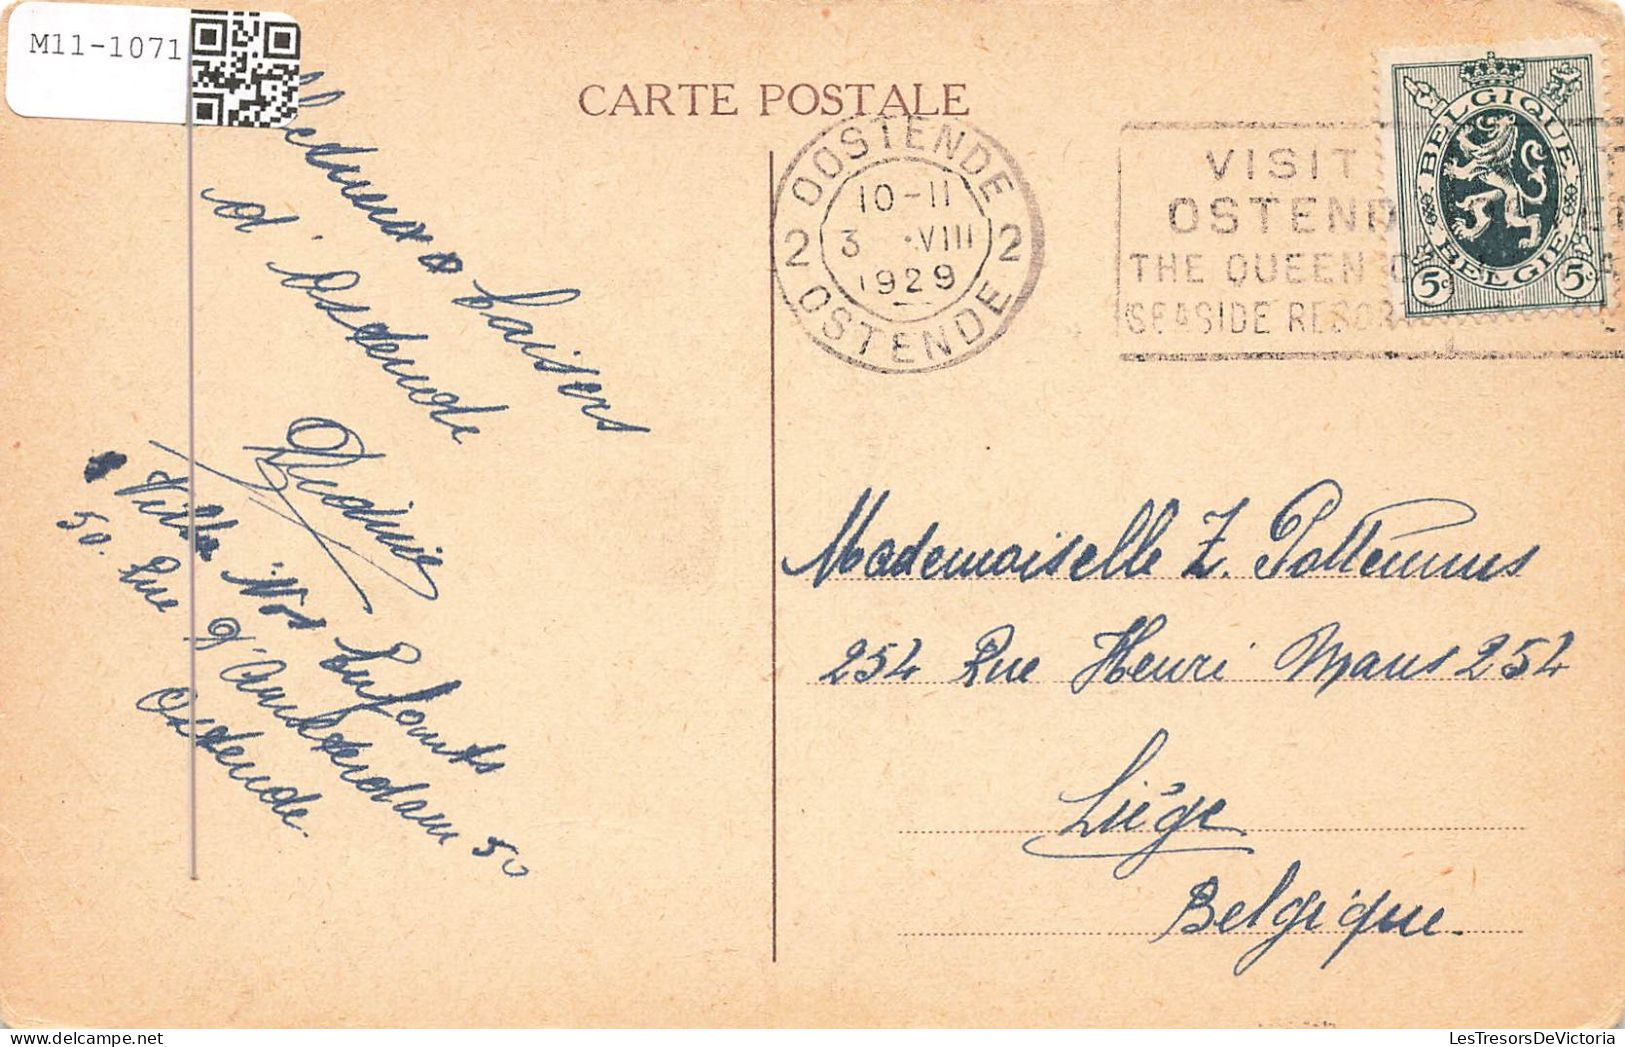 M11-1071
CARTE POSTALE
OOSTENDE
10-11
3 VIII
1929
2 2
OSTENDE
VISIT
OSTEND
THE QUEEN
SEASIDE RESOR
BELGIQUE
BELGIE
5c 5c
baisers
d'Ostende
Villa "Nos Enfants
50. Rue d'Amsterdam 50
Ostende.
Mademoiselle Z. Pottemus
254 Rue Henri Maus 254
Liège
Belgique.
LesTresorsDeVictoria